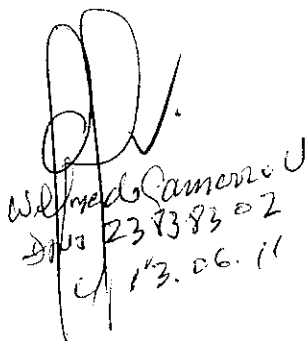 Wilfredo Camerro U
DNI 23838302
13.06.11